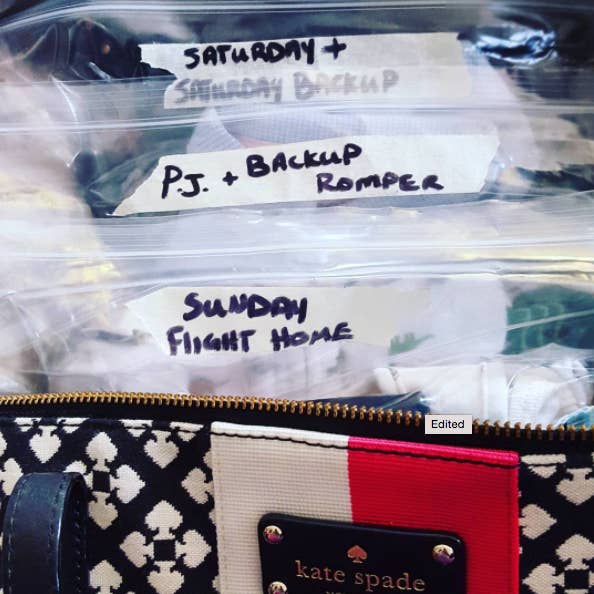 SATURDAY +
SATURDAY BACKUP
P.J. + BACKUP
ROMPER
SUNDAY
FLIGHT HOME
Edited
kate spade